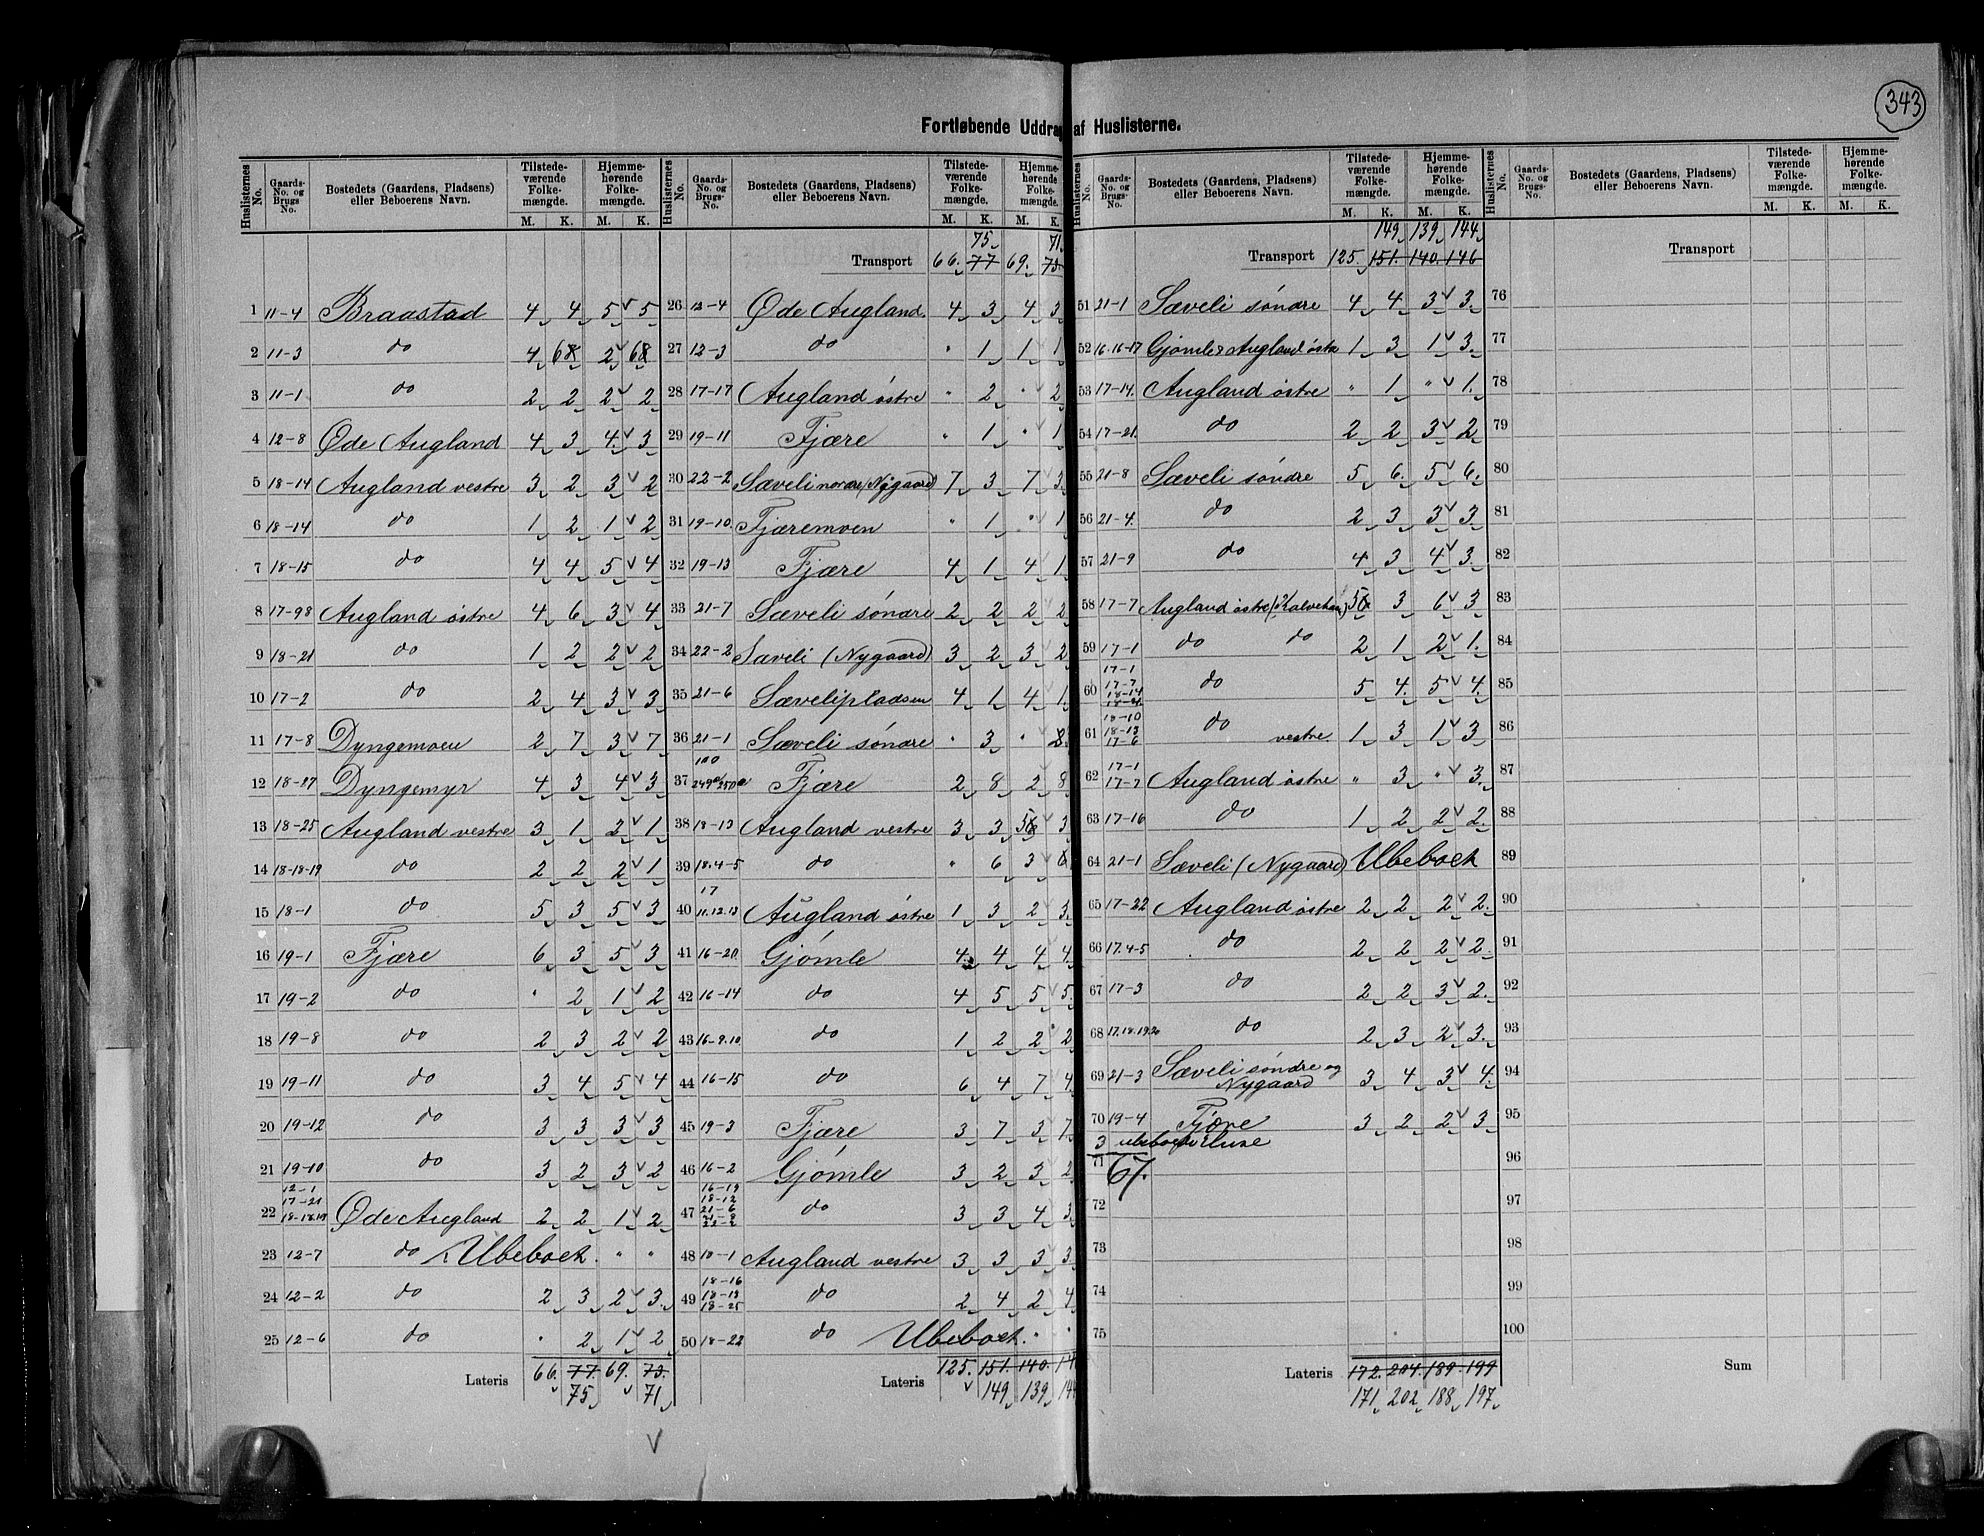 343
Fortløbende Uddrag af Huslisterne.
Huslisternes No. Gaards-No. og Brugs-No. Bostedets (Gaardens, Pladsens) eller Beboerens Navn. Tilstedeværende Folkemængde. M. K. Hjemmehørende Folkemængde. M. K.
1 11-4 Braastad 4 4 5 5
2 11-3 do 4 6 2 6
3 11-1 do 2 2 2 2
4 12-8 Øde Augland 4 3 4 3
5 18-14 Augland vestre 3 2 3 2
6 18-14 do 1 2 1 2
7 18-15 do 4 4 5 4
8 17-98 Augland østre 4 6 3 4
9 18-21 do 1 2 2 2
10 17-2 do 2 4 3 3
11 17-8 Dyngemoen 2 7 3 7
12 18-17 Dyngemyr 4 3 4 3
13 18-25 Augland vestre 3 1 2 1
14 18-18-19 do 2 2 2 1
15 18-1 do 5 3 5 3
16 19-1 Fjære 6 3 5 3
17 19-2 do " 2 1 2
18 19-8 do 2 3 2 2
19 19-11 do 3 4 5 4
20 19-12 do 3 3 3 3
21 19-10 do 3 2 3 2
12-1
17-21
22 18-18.19 Øde Augland 2 2 1 2
23 12-7 do Ubeboet. " "
24 12-2 do 2 3 2 3
25 12-6 do " 2 1 2
Lateris 66 77 69 73
75 71
Huslisternes No. Gaards-No. og Brugs-No. Bostedets (Gaardens, Pladsens) eller Beboerens Navn. Tilstedeværende Folkemængde. M. K. Hjemmehørende Folkemængde. M. K.
75 71
Transport 66 77 69 73
26 12-4 Øde Augland 4 3 4 3
27 12-3 do " 1 1 1
28 17-17 Augland østre " 2 " 2
29 19-11 Fjære " 1 " 1
30 22-2 Sæveli nordre (Nygaard) 7 3 7 3
31 19-10 Fjæremoen " 1 " 1
32 19-13 Fjære 4 1 4 1
33 21-7 Sæveli søndre 2 2 2 2
34 22-2 Sæveli (Nygaard) 3 2 3 2
35 21-6 Sævelipladsen 4 1 4 1
36 21-1 Sæveli søndre " 3 "
100
37 249a/250a Fjære 2 8 2 8
38 18-13 Augland vestre 3 3 5 3
39 18.4-5 do " 6 3 6
17
40 11.12.13 Augland østre 1 3 2 3
41 16-20 Gjømle 4 4 4 4
42 16-14 do 4 5 5 5
43 16-9.10 do 1 2 2 2
44 16-15 do 6 4 7 4
45 19-3 Fjære 3 7 3 7
46 16-2 Gjømle 3 2 3 2
16-19
18-12
47 21-6 do 3 3 4 3
21-8
22-2
48 18-1 Augland vestre 3 3 3 3
18-16
49 18-19 do 2 4 2 4
18-25
50 18-22 do Ubeboet. " "
Lateris 125. 151. 140. 14
149 139 14
Huslisternes No. Gaards-No. og Brugs-No. Bostedets (Gaardens, Pladsens) eller Beboerens Navn. Tilstedeværende Folkemængde. M. K. Hjemmehørende Folkemængde. M. K.
149 139 144
Transport 125. 151. 140. 146
51 21-1 Sæveli søndre 4 4 3 3
52 16.16-17 Gjømle & Augland østre 1 3 1 3
53 17-14. Augland østre " 1 " 1
54 17-21. do 2 2 3 2
55 21-8 Sæveli søndre 5 6 5 6
56 21-4. do 2 3 3 3
57 21-9 do 4 3 4 3
58 17-7 Augland østre 5 3 6 3
59 17-1 do do 2 1 2 1
17-1
17-7
60 18-14 do 5 4 5 4
18-21
18-10
61 18-13 do vestre 1 3 1 3
17-6
17-1
62 17-7 Augland østre " 3 " 3
63 17-16 do 1 2 2 2
64 21-1 Sæveli (Nygaard) Ubeboet
65 17-22 Augland østre 2 2 2 2
66 17.4-5 do 2 2 2 2
67 17-3 do 2 2 3 2
68 17.18.19.20 do 2 3 2 3
69 21-3 Sæveli søndre og Nygaard 3 4 3 4
70 19-4 Fjære 3 2 2 3
3 ubeboede Huse
71 67.
72
73
74
75
Lateris 172. 204. 189. 199
171 202 188 197
Huslisternes No. Gaards-No. og Brugs-No. Bostedets (Gaardens, Pladsens) eller Beboerens Navn. Tilstedeværende Folkemængde. M. K. Hjemmehørende Folkemængde. M. K.
Transport
76
77
78
79
80
81
82
83
84
85
86
87
88
89
90
91
92
93
94
95
96
97
98
99
100
Sum